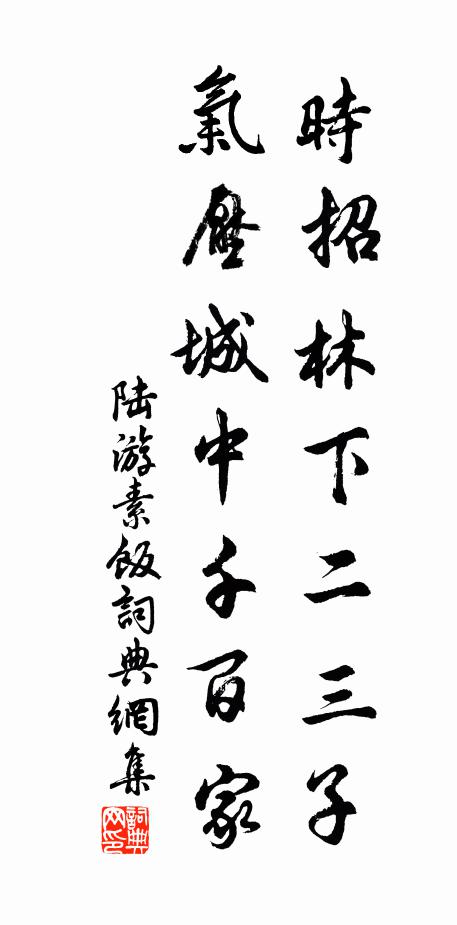 時招林下二三子
氣壓城中千百家
陆游素飯詞典網集
詞典网印